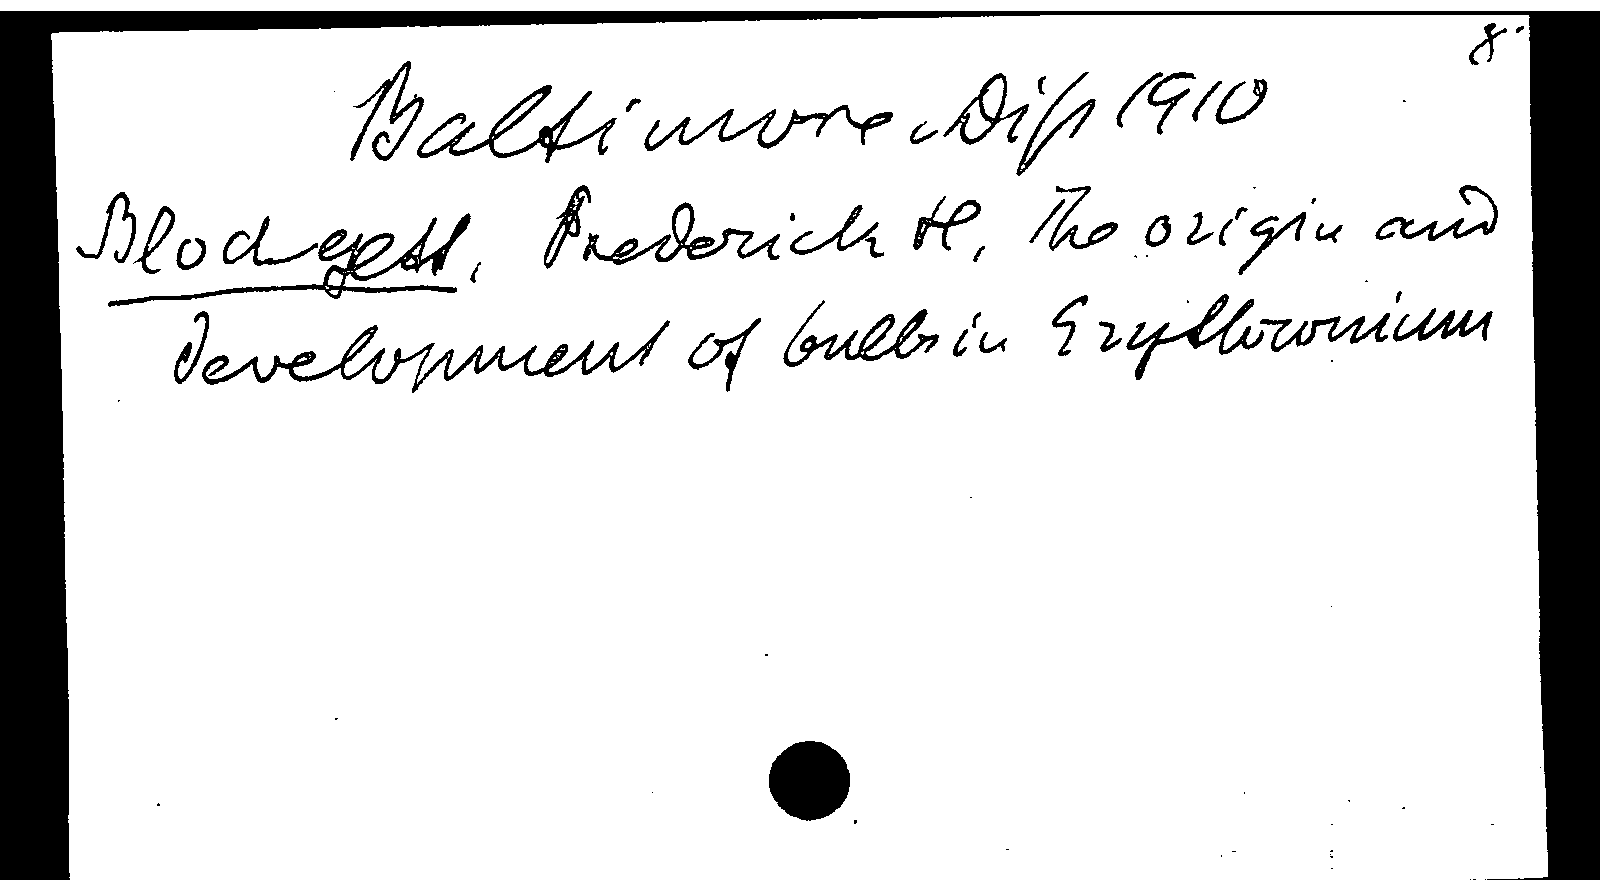 8°
Baltimore. Diss 1910
Blodgett, Frederick H. The origin and
development of bulbs in Erythronium